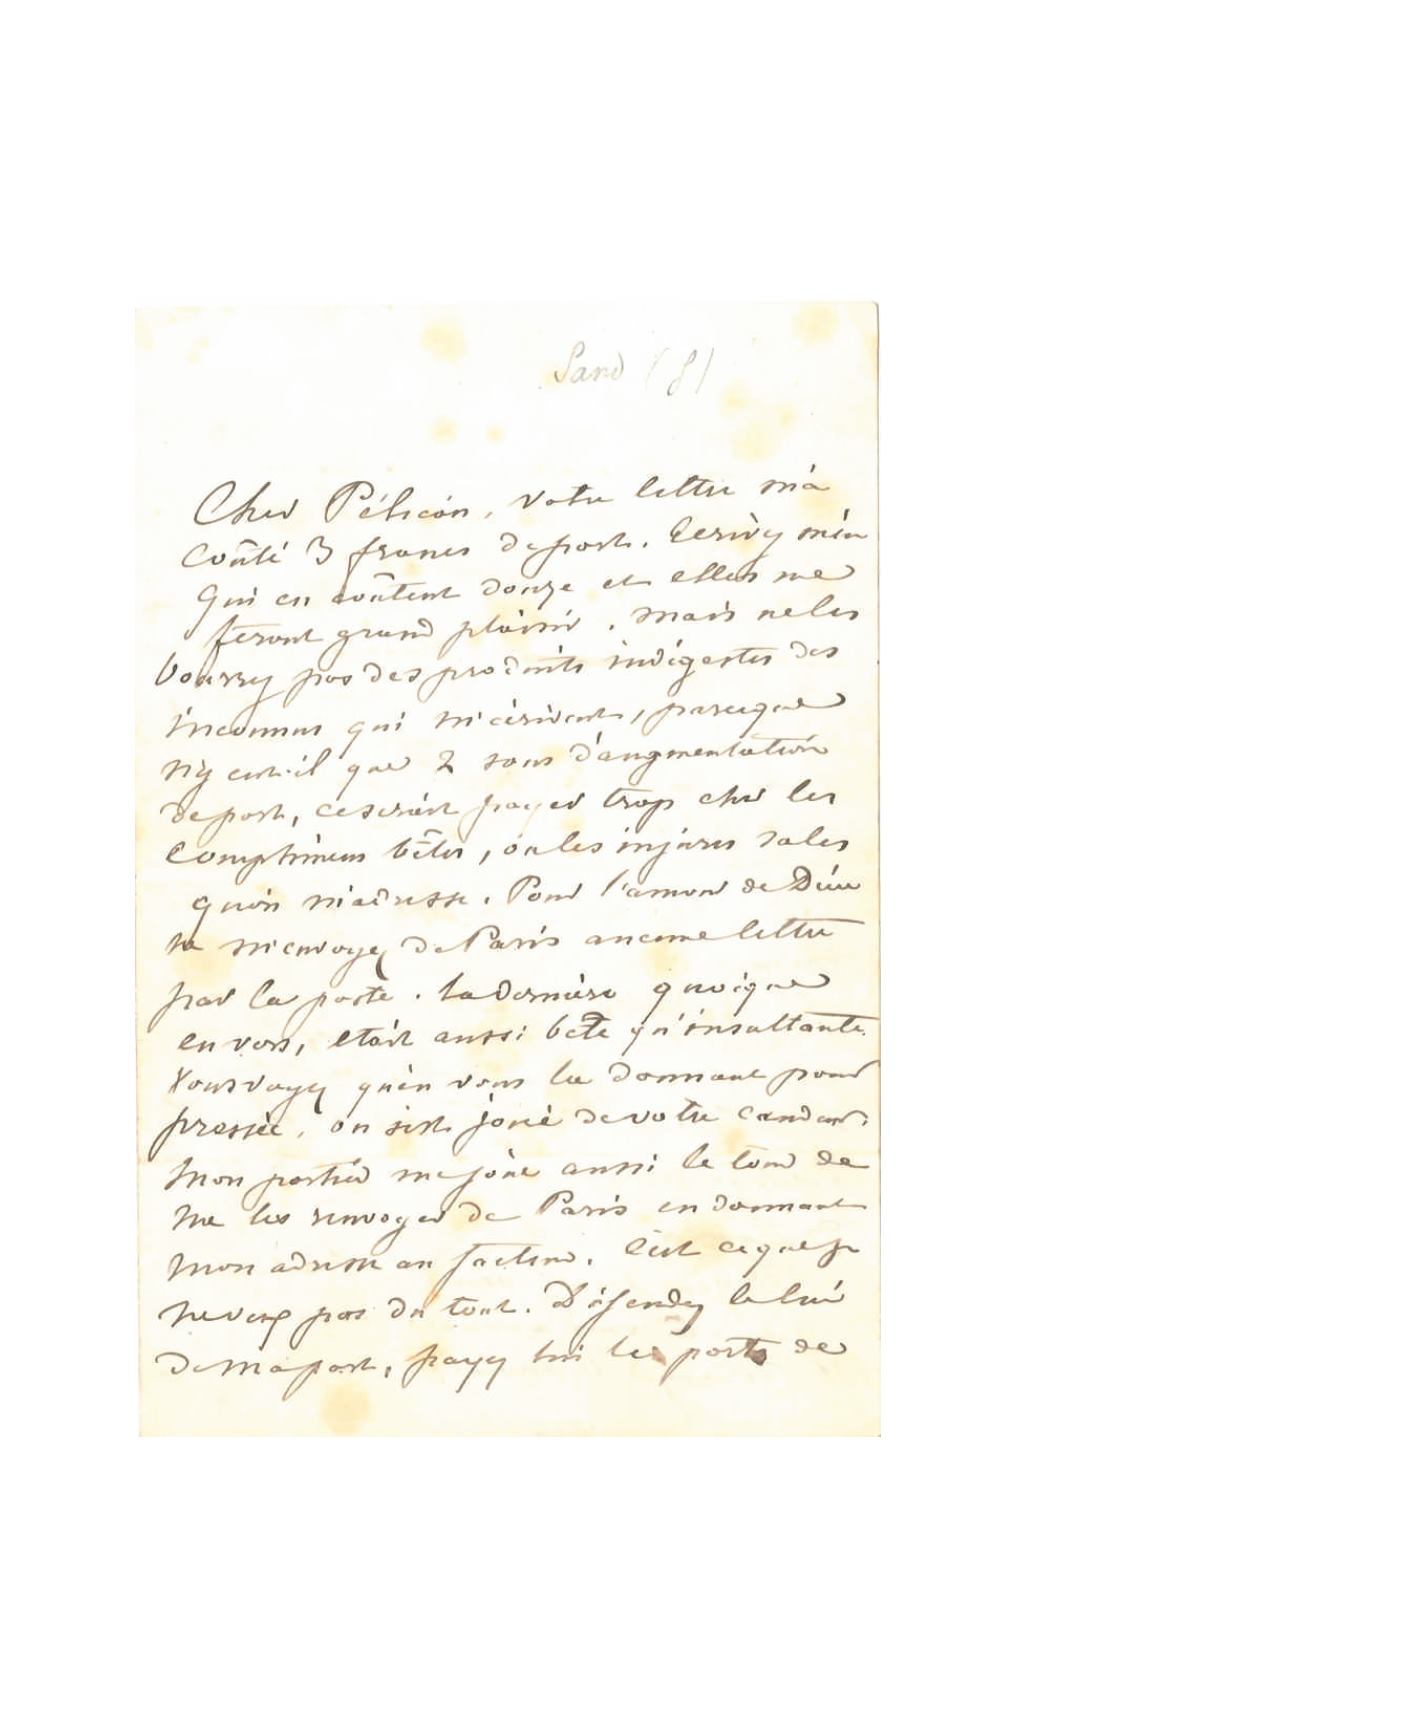 Sand (8)
Cher Pélican, votre lettre m'a
coûté 3 francs de port. Ecrivez m'en
qui en coûtent douze et elles me
feront grand plaisir. mais ne les
bourrez pas des produits indigestes des
inconnus qui m'écrivent, parceque
n'y eut-il que 2 sous d'augmentation
de port, ce serait payer trop cher les
complimens bêtes, ou les injures sales
qu'on m'adresse. Pour l'amour de Dieu
ne m'envoyez de Paris aucune lettre
par la poste. La dernière quoique
en vers, etait aussi bête qu'insultante.
Vous voyez qu'en vous la donnant pour
pressée, on s'est joué de votre candeur.
Mon portier me joue aussi le tour de
me les renvoyer de Paris en donnant
mon adresse au facteur. C'est ce que je
ne veux pas du tout. Défendez le lui
de ma part, payez lui les ports de